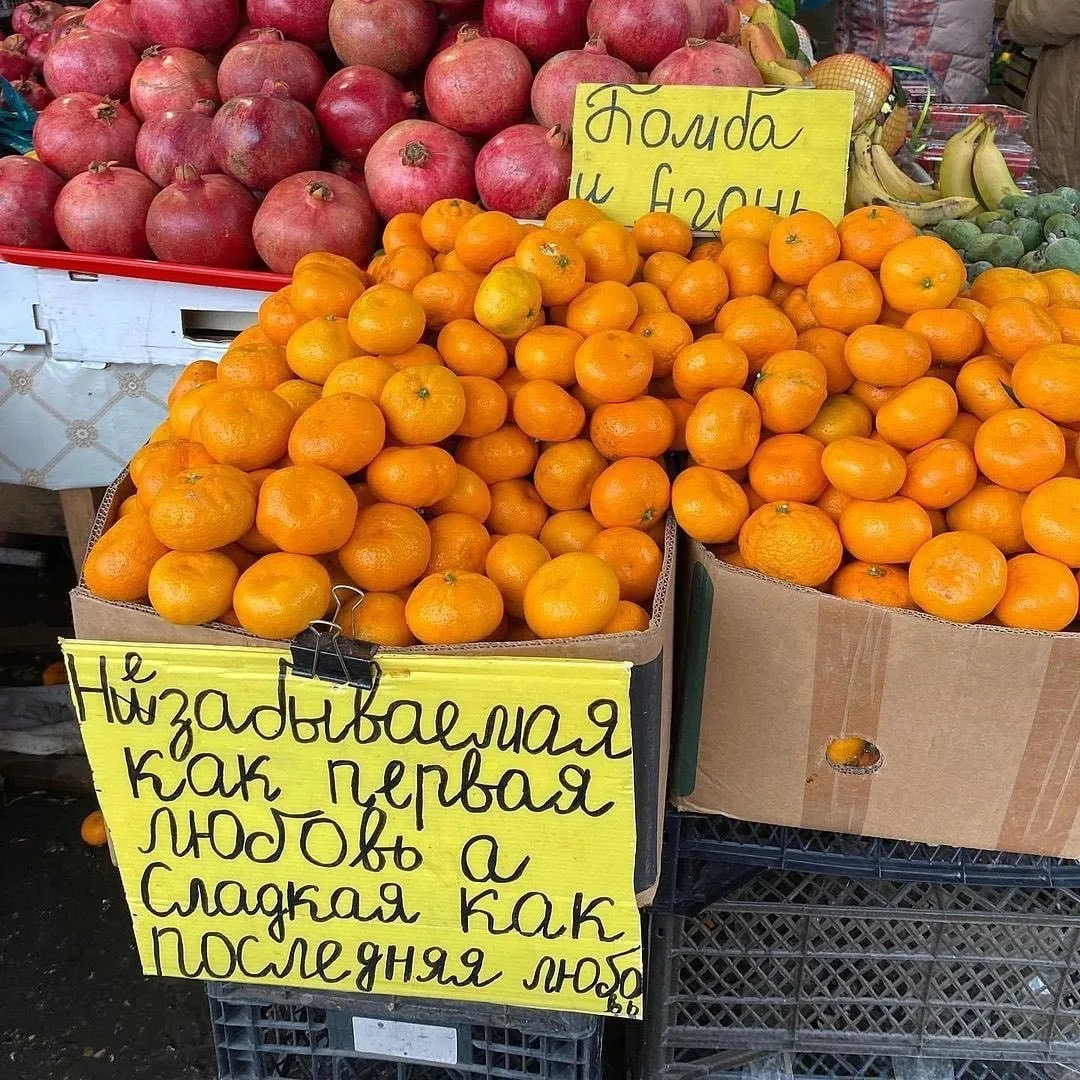 Бомба
и Агонь
Незабываемая
как первая
любовь а
Сладкая как
последняя любовь